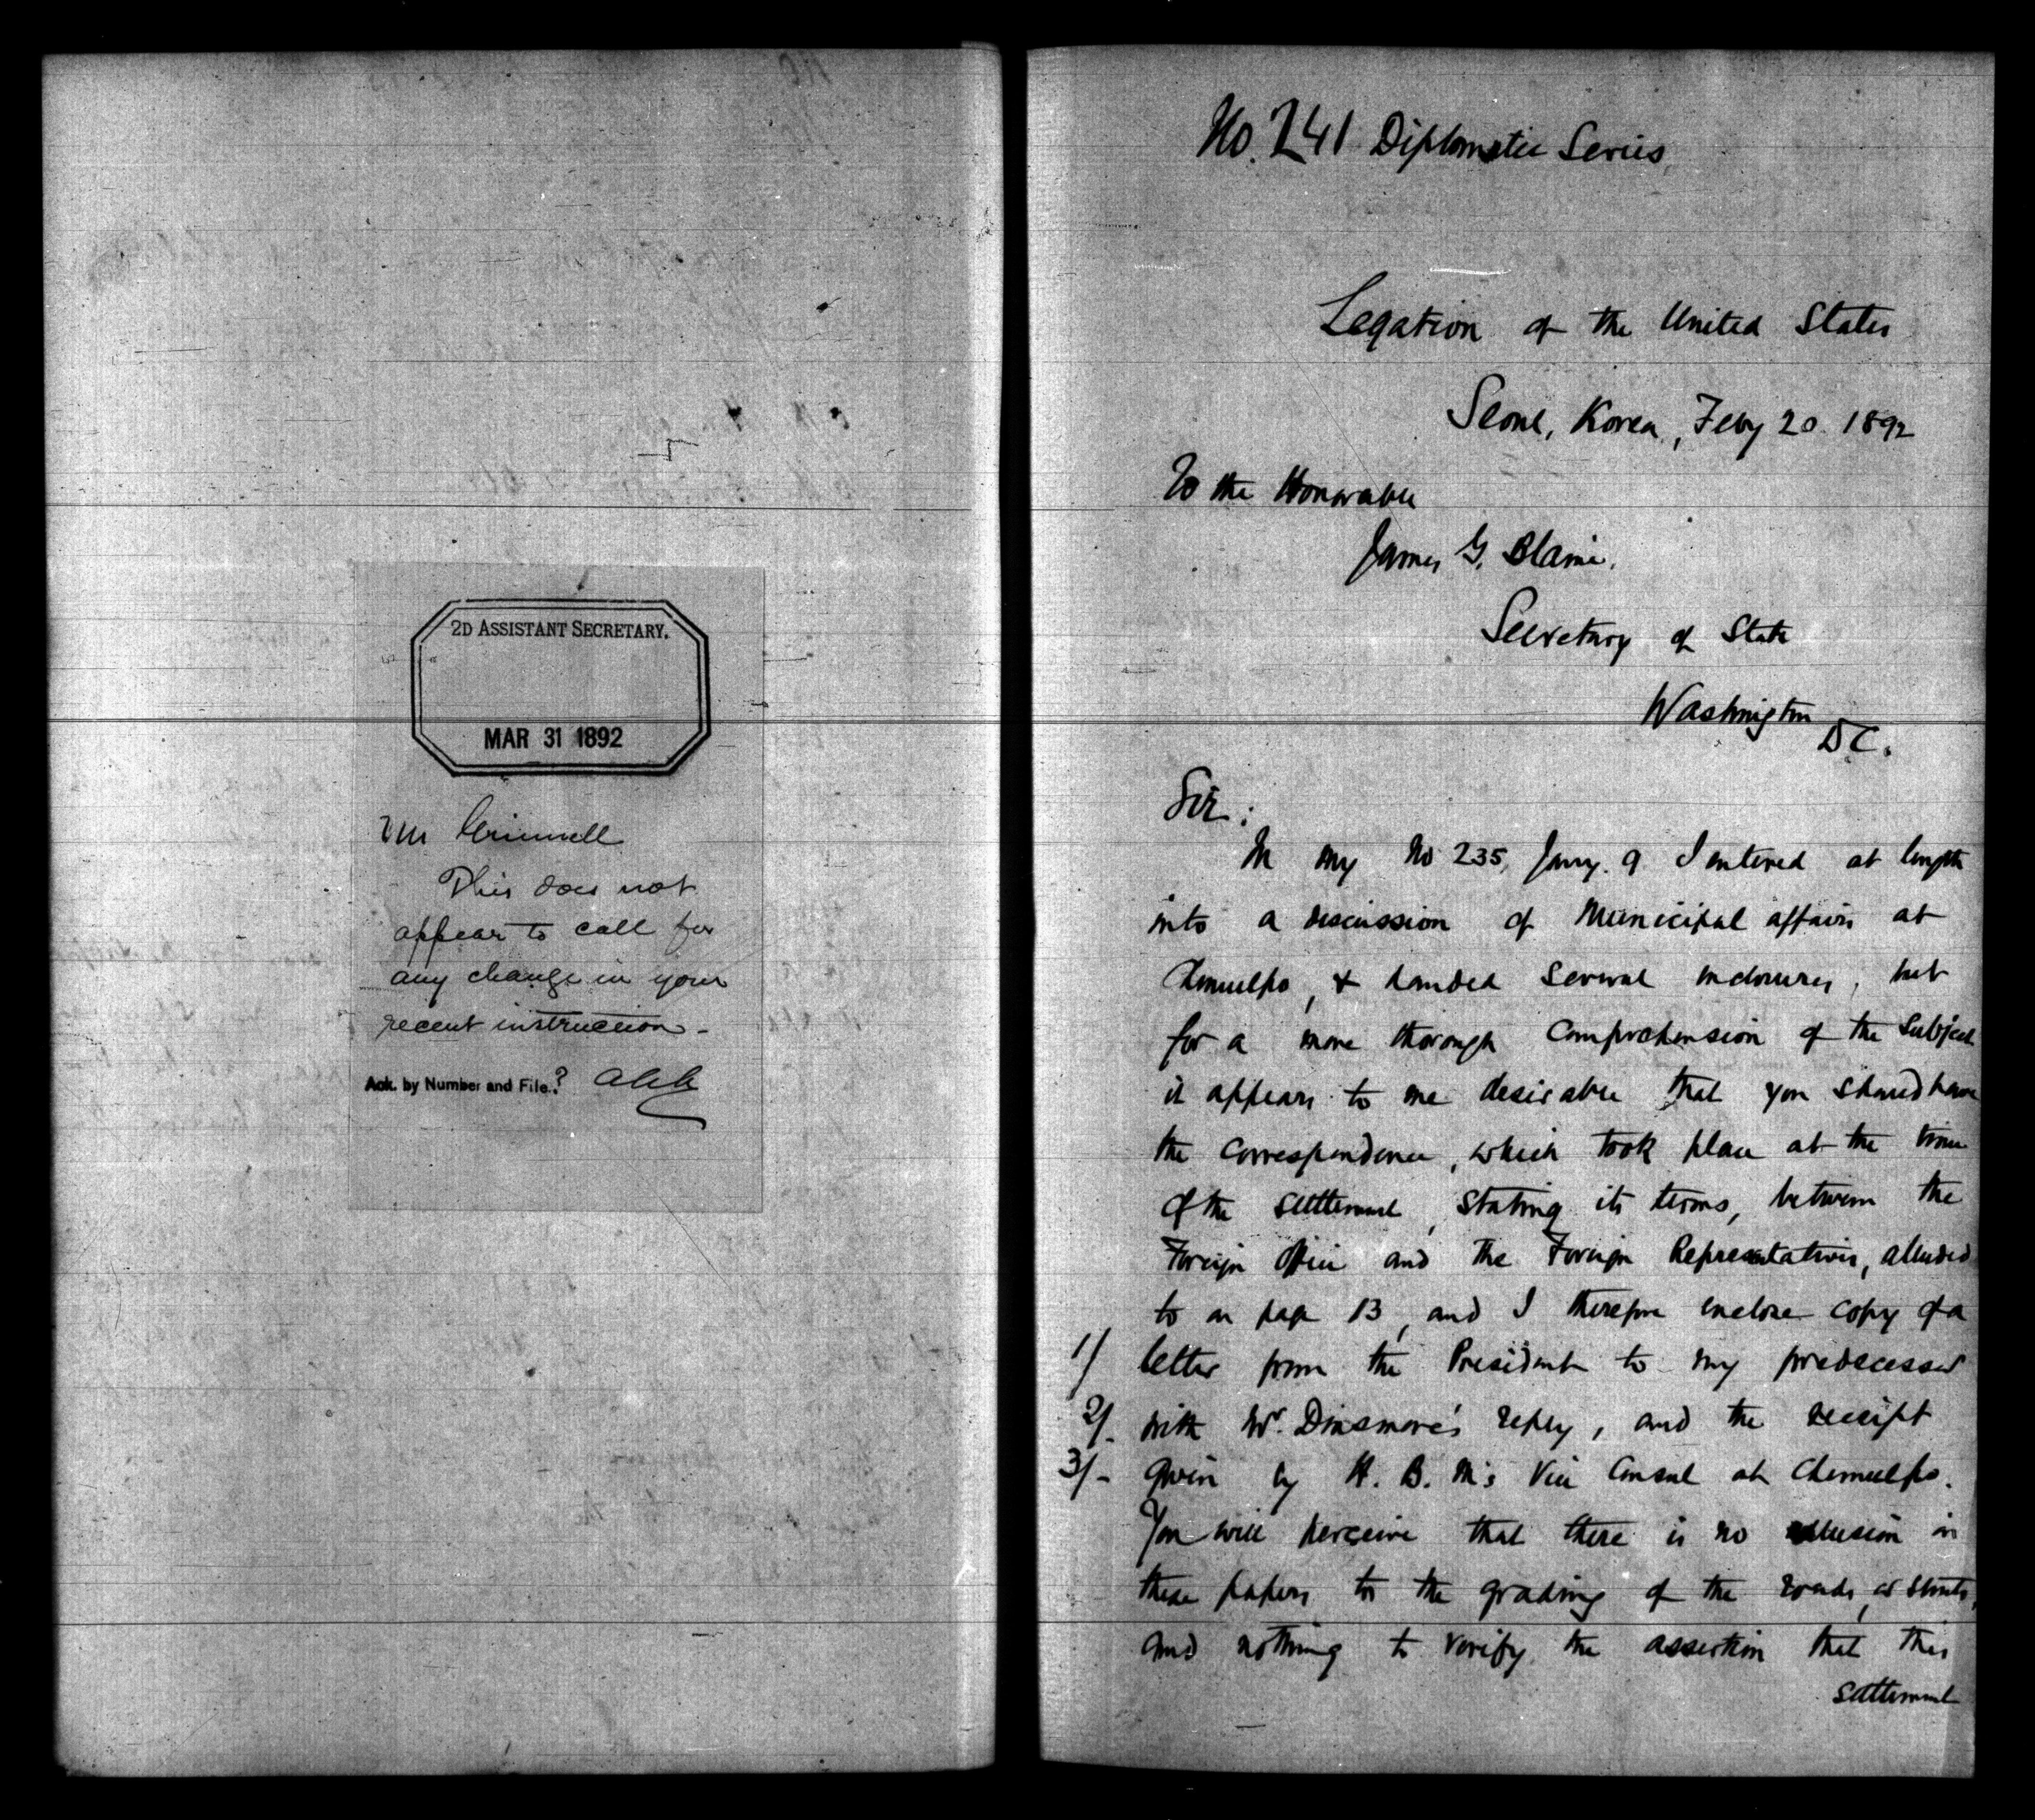 2D ASSISTANT SECRETARY.
MAR 31 1892
Mr Grinnell
This does not
appear to call for
any change in your
recent instruction -
Ack. by Number and File.?
No. 241 Diplomatic Series
Legation of the United States
Seoul, Korea, Feby 20. 1892
To the Honorable
James G. Blaine,
Secretary of State
Washington
D.C.
Sir:
In my No 235, Jany. 9 I entered at length
into a discussion of Municipal affairs at
Chemulpo, & handed several inclosures, but
for a more thorough Comprehension of the Subject
it appears to me desirable that you should have
the correspondence, which took place at the time
of the settlement, stating its terms, between the
Foreign Office and the Foreign Representatives, alluded
to on page 13, and I therefore enclose copy of a
1/ letter from the President to my predecessor
2/- with Mr. Dinsmore's reply, and the receipt
3/- given by H. B. M's Vice Consul at Chemulpo.
You will perceive that there is no allusion in
these papers to the grading of the roads, or streets,
and nothing to verify the assertion that this
settlement